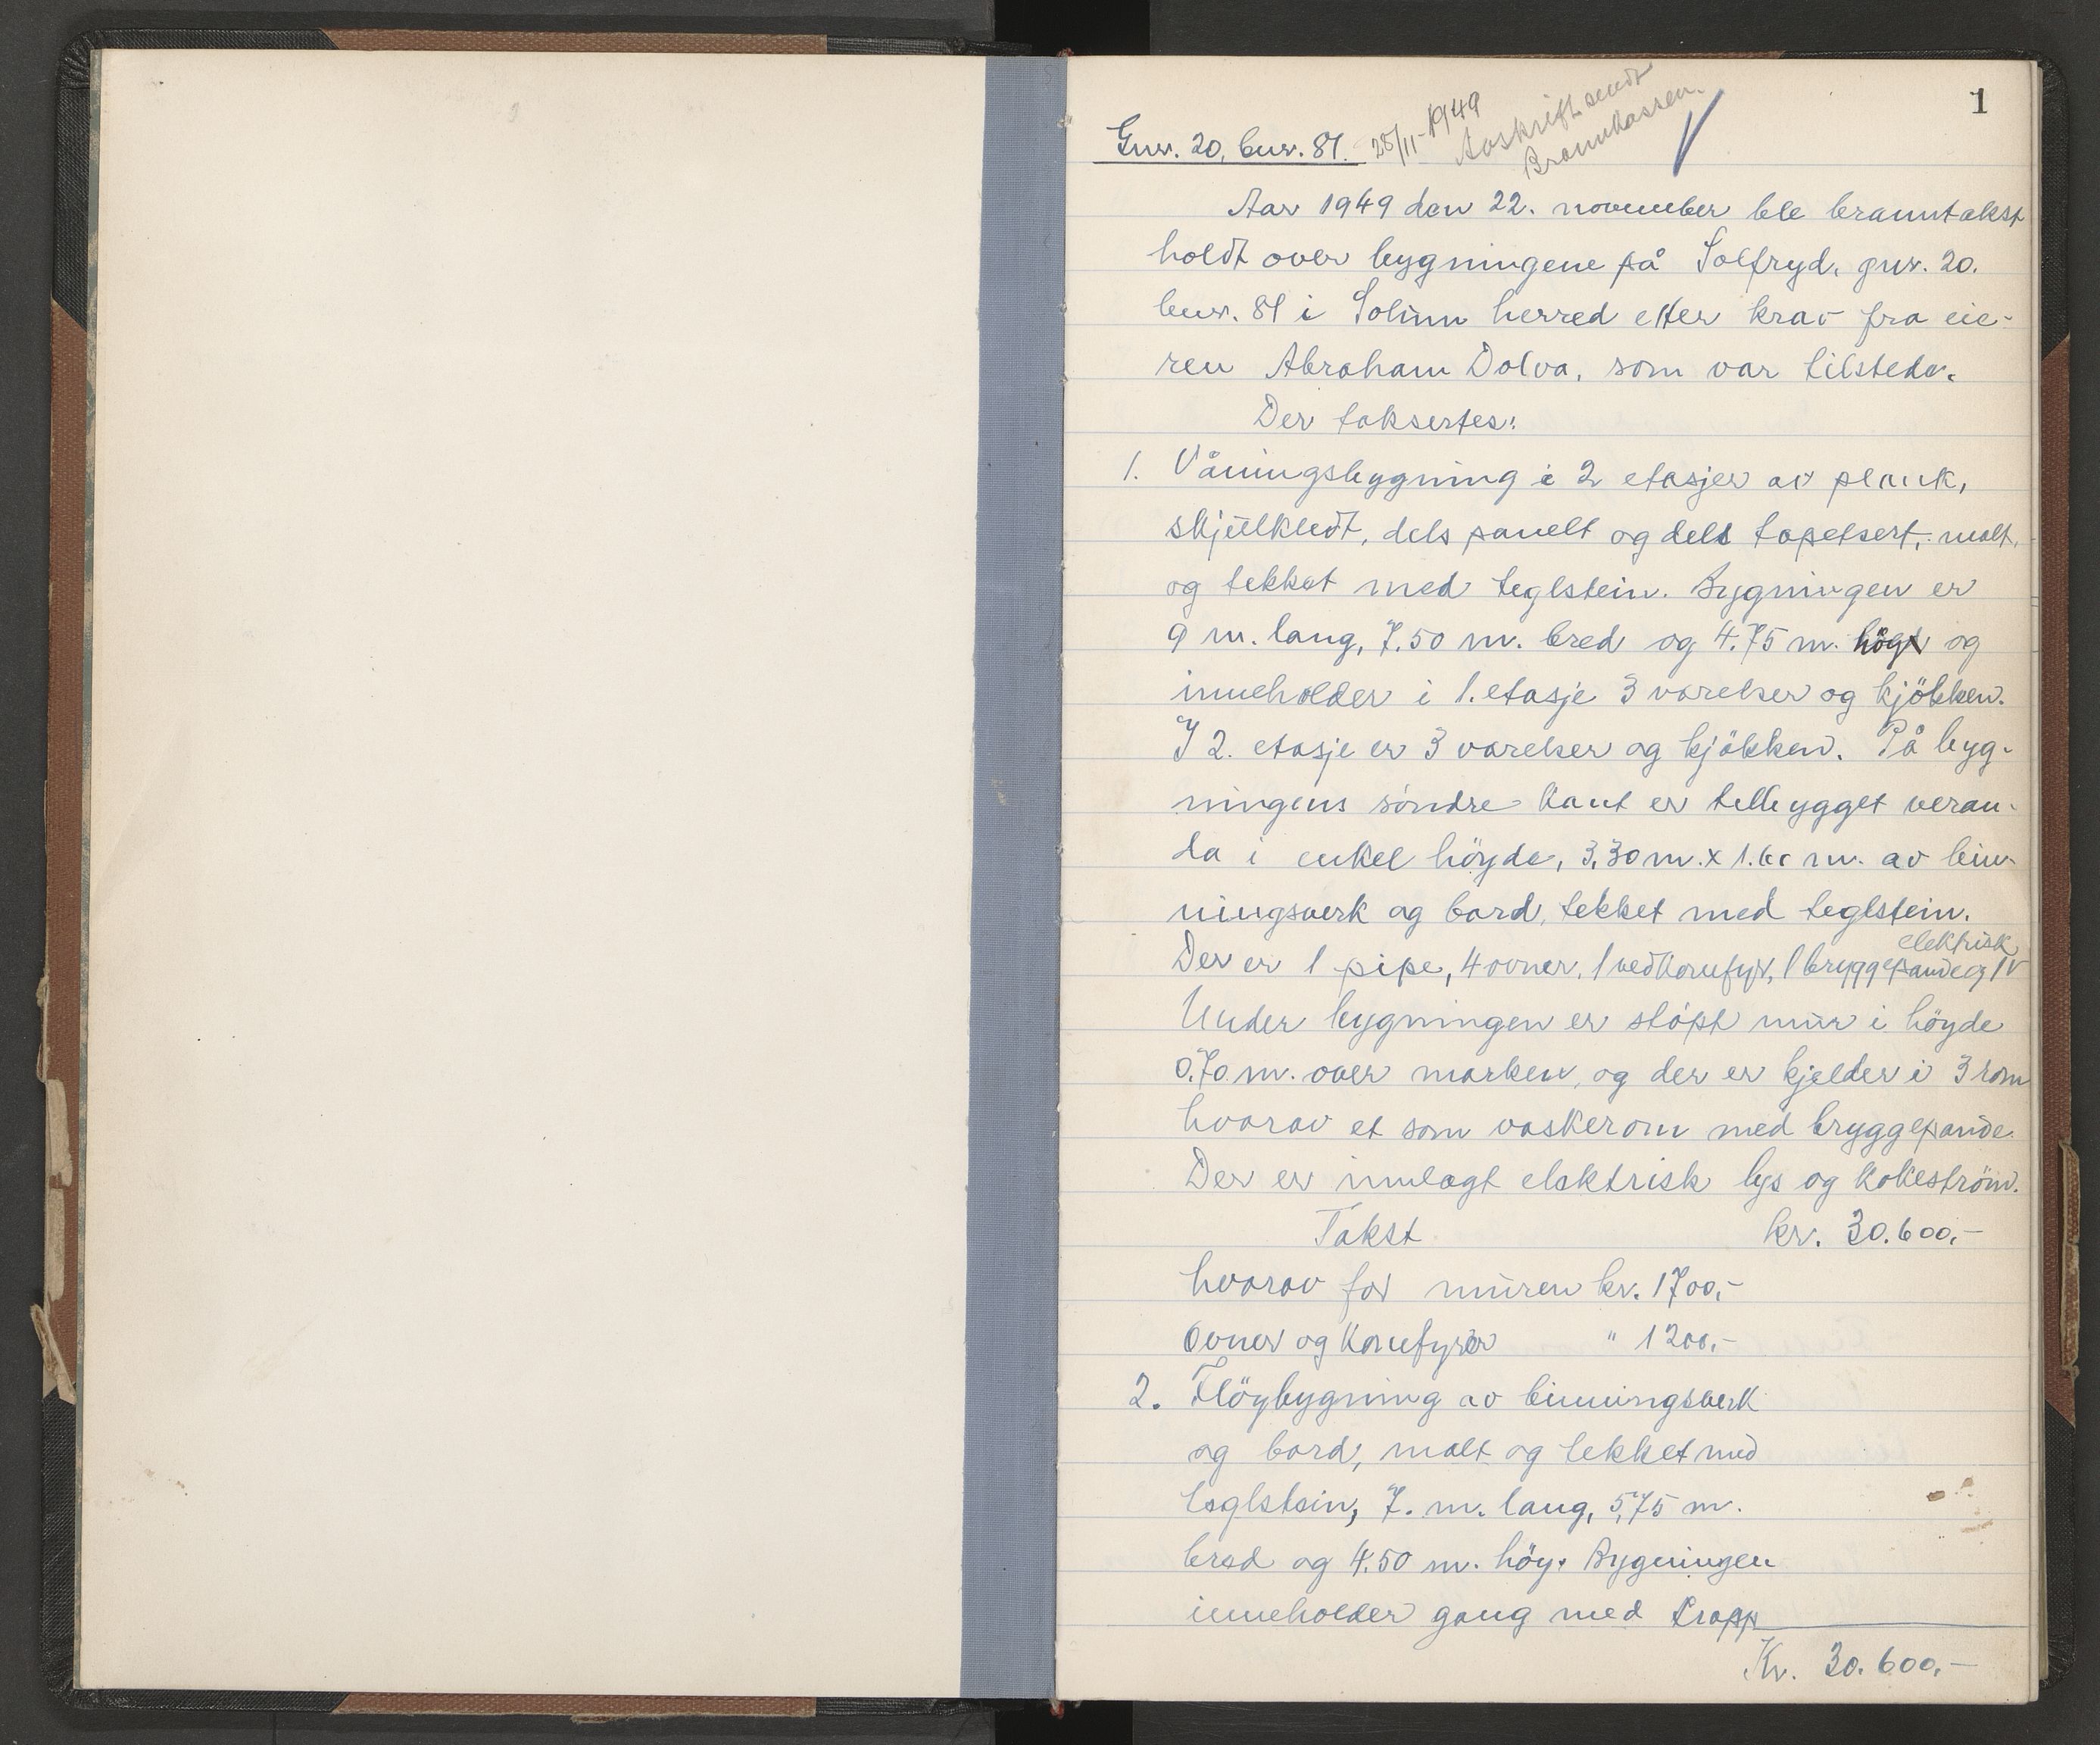 1
Gnr. 20, bnr. 81. 28/11-1949
Avskrift sendt
Brannkassen.
Aar 1949 den 22. november ble branntakst
holdt over bygningene på Solfryd, gnr. 20.
bnr. 81 i Solum herred etter krav fra eie-
ren Abraham Dolva, som var tilstede.
Der taksertes:
1. Våningsbygning i 2 etasjer av plank,
skjulkledt, dels panelt og dels tapetsert, malt,
og tekket med teglstein. Bygningen er
9 m. lang, 7.50 m. bred og 4.75 m. høg og
inneholder i 1. etasje 3 værelser og kjökken.
I 2. etasje er 3 værelser og kjökken. På byg-
ningens söndre kant er tilbygget veran-
da i enkel höyde, 3,30 m. x 1.60 m. av bin-
ningsverk og bord, tekket med teglstein.
elektrisk
Der er 1 pipe, 4 ovner, 1 vedkomfyr, 1 bryggepande og 1 v
Under bygningen er stöpt mur i höyde
0.70 m. over marken, og der er kjelder i 3 rom
hvorav et som vaskerom med bryggepande.
Der er innlagt elektrisk lys og kokeström.
Takst kr. 30.600,-
hvorav for muren kr. 1700,-
Ovner og komfyrer " 1200,-
2. Flöybygning av binningsverk
og bord, malt og tekket med
teglstein, 7. m. lang, 5,75 m.
bred og 4.50 m. höy. Bygningen
inneholder gang med trapp
Kr. 30.600,-